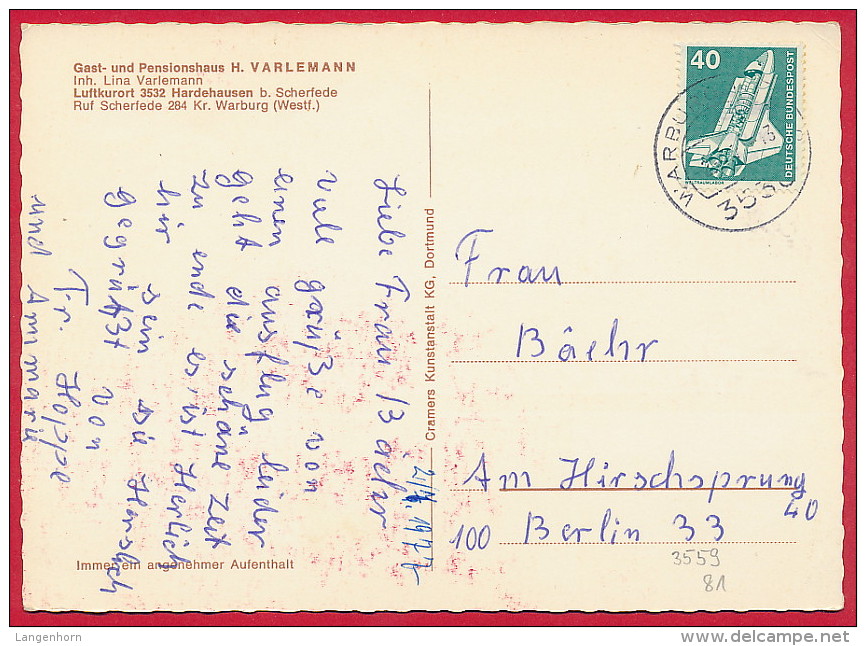 Gast- und Pensionshaus H. VARLEMANN
Inh. Lina Varlemann
Luftkurort 3532 Hardehausen b. Scherfede
Ruf Scherfede 284 Kr. Warburg (Westf.)
40
DEUTSCHE BUNDESPOST
WELTRAUMLABOR
WARBU
353
Cramers Kunstanstalt KG, Dortmund
Liebe Frau Baehr
viele grüße von
einen ausflug leider
geht die schöne Zeit
zu ende es ist Herlich
hir sein sie Herslich
gegrüßt von
Fr. Hoppe
und Anmarie
Frau
Bäehr
Am Hirschsprung
40
100 Berlin 33
3559
81
Immer ein angenehmer Aufenthalt
Langenhorn
www.delcampe.net